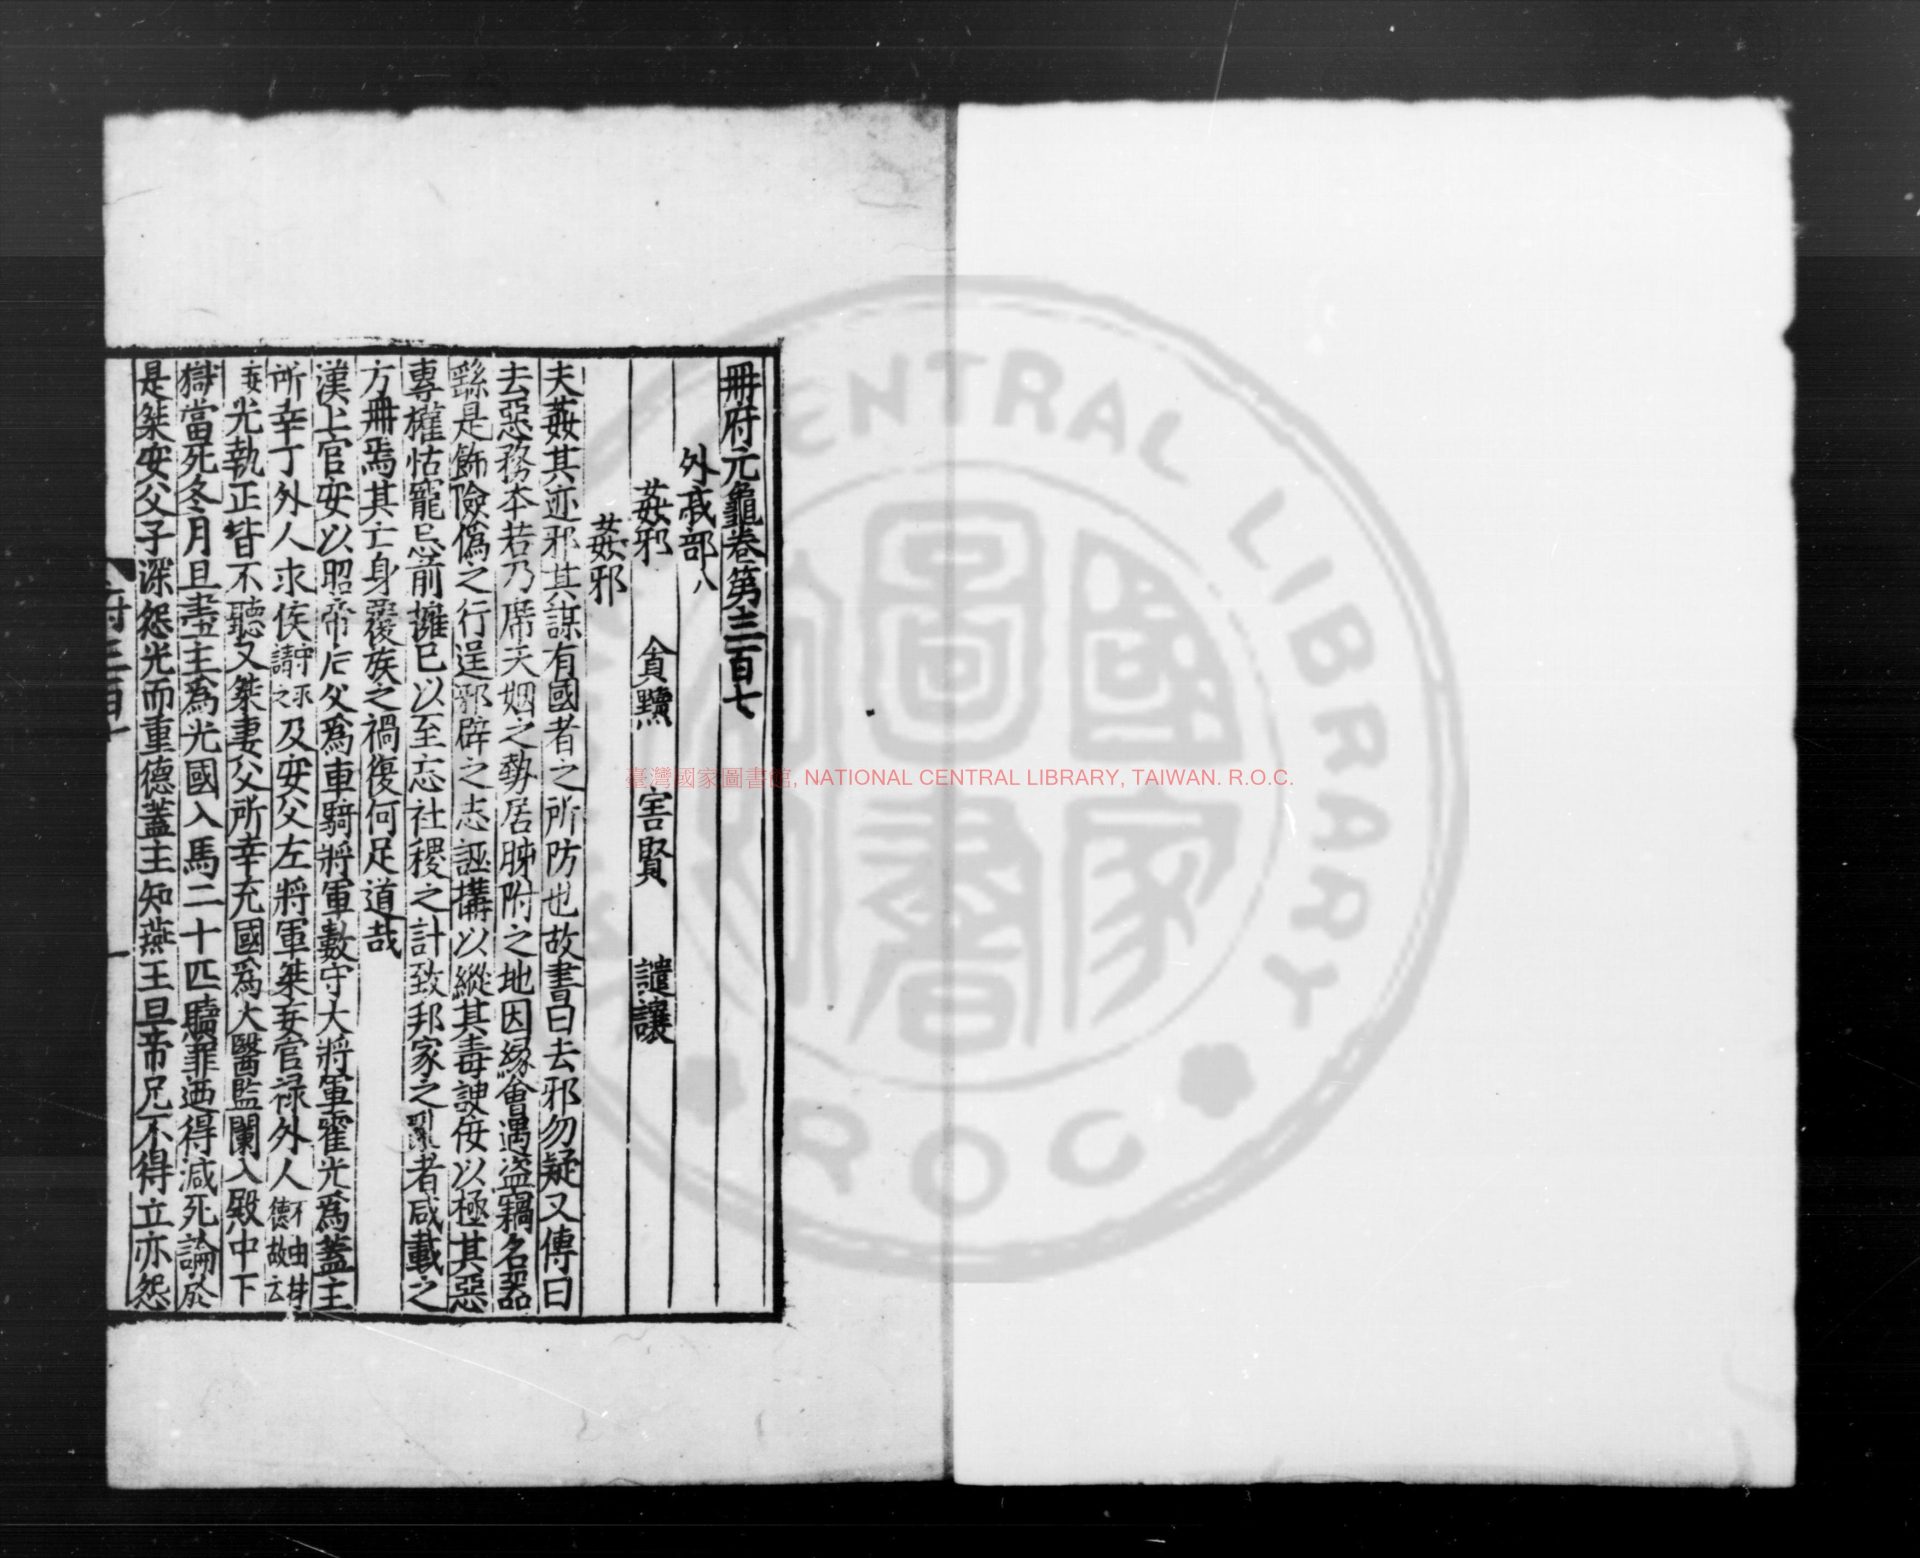 冊府元龜卷第三百七
外戚部八
姦邪 貪黷 害賢 譴讓
姦邪
夫姦其迹邪其謀有國者之所防也故書曰去邪勿疑又傳曰
去惡務本若乃席天姻之勢居肺附之地因緣會遇盜竊名器
繇是飾險僞之行逞邪辟之志誣搆以縱其毒諛佞以極其惡
專權怙寵忌前擁已以至忘社稷之計致邦家之亂者咸載之
方冊焉其亡身覆族之禍復何足道哉
漢上官安以昭帝后父爲車騎將軍數守大將軍霍光爲蓋主
所幸丁外人求侯守求請之及安父左將軍桀妄官祿外人不由材德故云
妄光執正皆不聽又桀妻父所幸充國爲大醫監闌入殿中下
獄當死冬月且盡蓋主爲光國入馬二十匹贖罪迺得減死論於
是桀安父子深怨光而重德蓋主知燕王旦帝兄不得立亦怨
府三百七
一
臺灣國家圖書館, NATIONAL CENTRAL LIBRARY, TAIWAN. R.O.C.
CENTRAL LIBRARY
R O C
國家圖書館